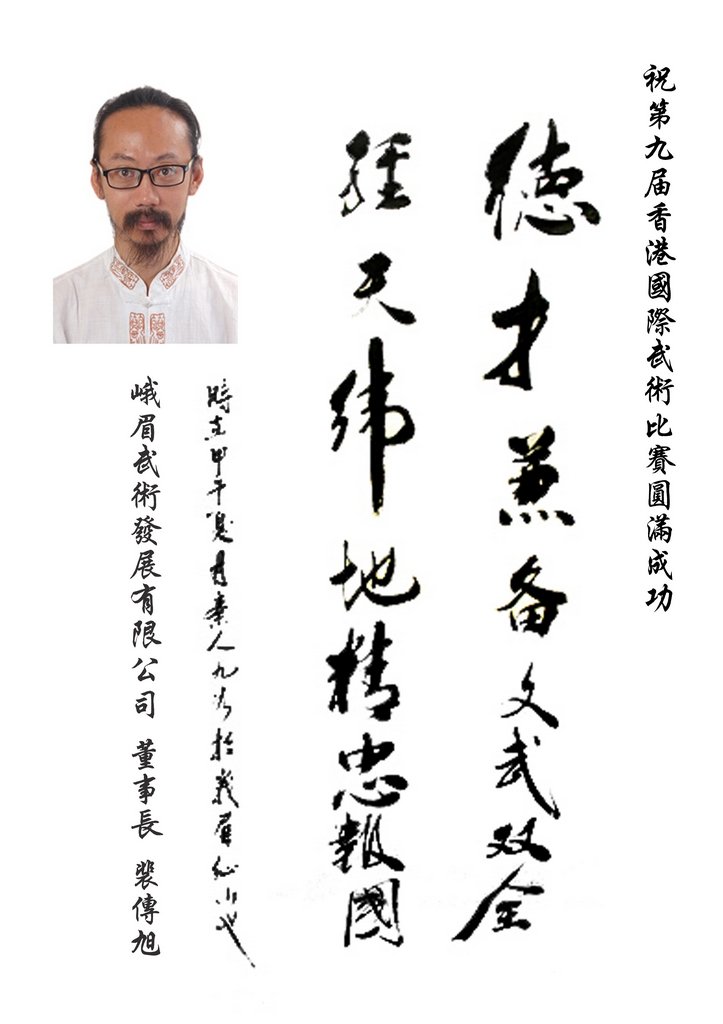 祝第九届香港國際武術比賽圓滿成功
德才兼备文武双全
經天纬地精忠報國
時在甲午夏月秦人九於峨眉仙山也
峨眉武術發展有限公司 董事長 裴傳旭